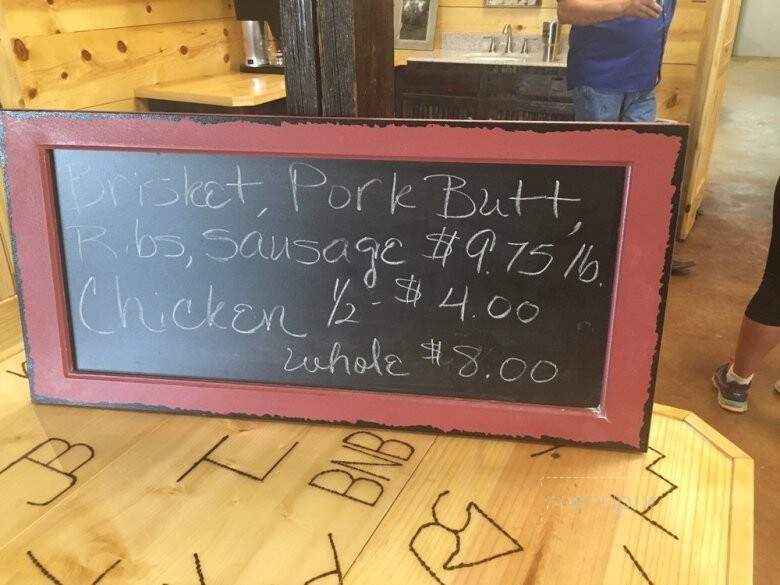 Brisket, Pork Butt,
Ribs, Sausage $9.75 lb.
Chicken 1/2 - $4.00
whole $8.00
JB
TL
BNB